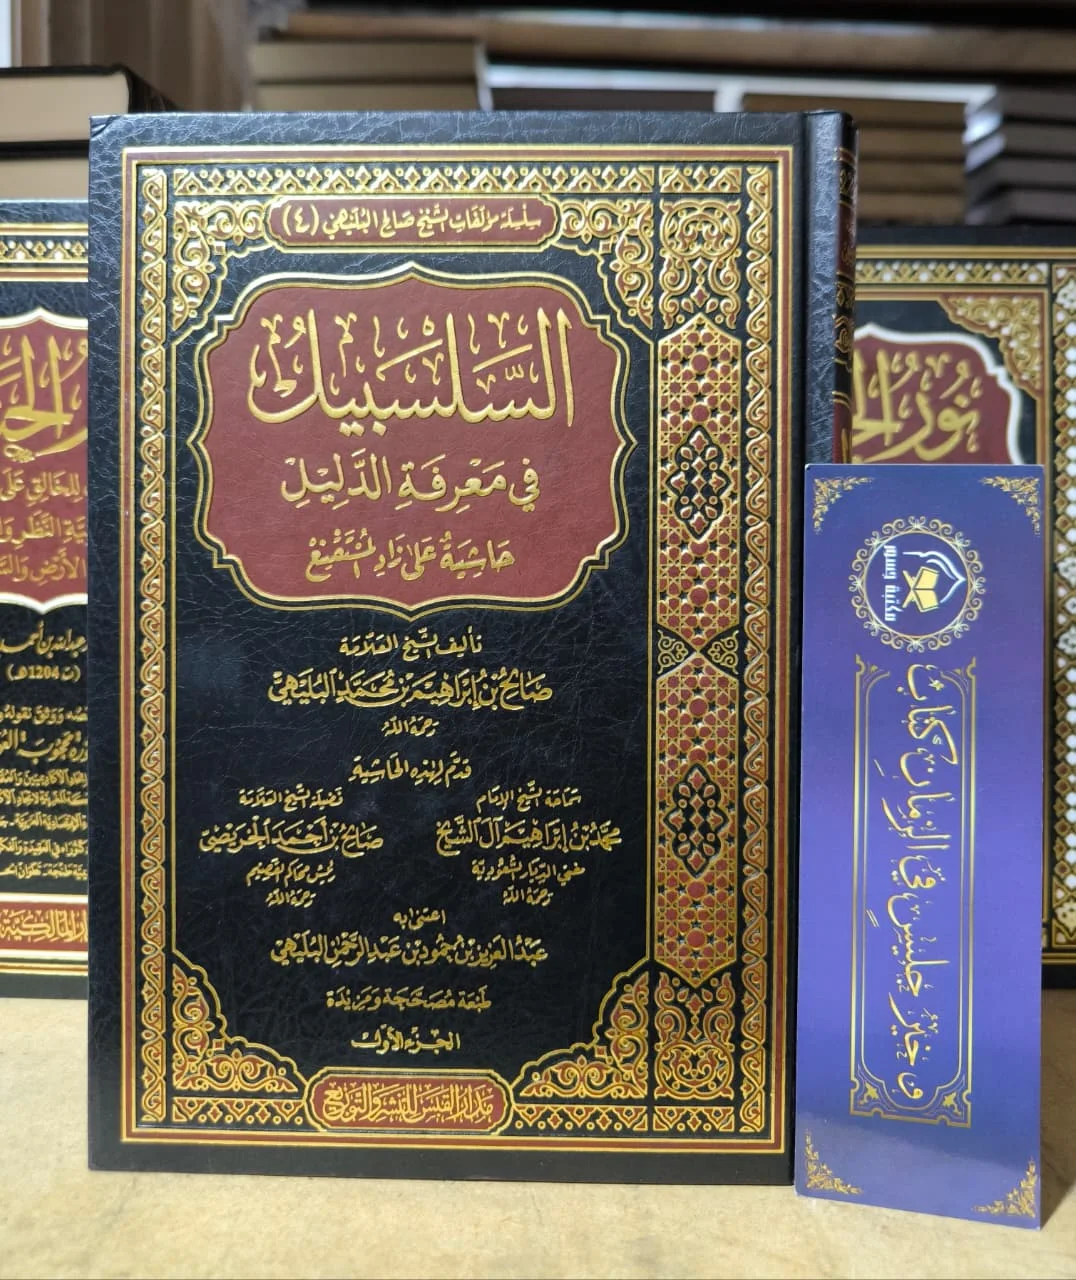 سلسلة مؤلفات الشيخ صالح البليهي (٤)
السَّلْسَبِيلُ
في مَعْرِفَةِ الدَّلِيلِ
حَاشِيَةٌ عَلَى زَادِ المُسْتَقْنِعْ
تأليف الشيخ العلّامة
صَالِحُ بْنُ إِبْرَاهِيمَ بْنِ مُحَمَّدٍ البُلَيْهِي
رحمه الله
قدّم لهذه الحاشية
سماحة الشيخ الإمام
محمّد بن إبراهيم آل الشيخ
مفتي الديار السعودية
رحمه الله
فضيلة الشيخ العلامة
صالح بن أحمد الخريصي
رئيس محاكم القصيم
رحمه الله
اعتنى به
عبد العزيز بن حمود بن عبد الرحمن البليهي
طبعة مصححة ومزيدة
الجزء الأول
مدار القبس للنشر والتوزيع
مكتبة وسم
من خير جليسٍ في الزمانِ كتاب
نور الح
للخالق على
ية النظر وا
الأرض والس
عبدالله بن أحمد
(ت 1204هـ)
دار المالكية